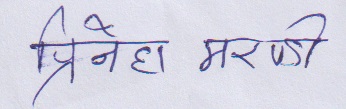 प्रिनेहा मरण्डी